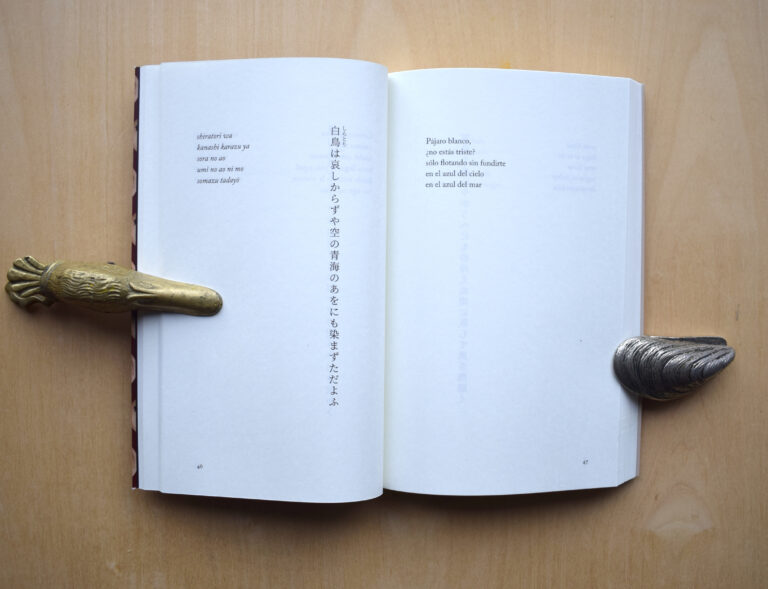 shiratori wa
kanashi karazu ya
sora no ao
umi no ao ni mo
somazu tadayō
しらとり
白鳥は哀しからずや空の青海のあをにも染まずただよふ
46
Pájaro blanco,
¿no estás triste?
sólo flotando sin fundirte
en el azul del cielo
en el azul del mar
47